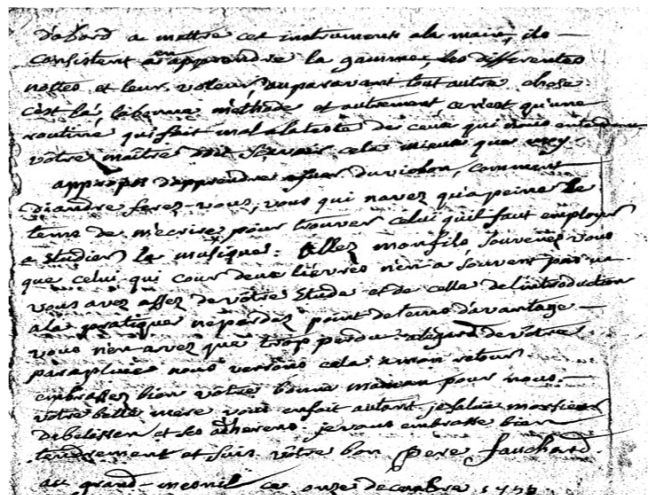 d'abord a mettre cet instrument a la main, ils
consistent a en apprendre la gamme, les differentes
nottes et leur valeur, auparavant tout autre chose
c'est la, la bonne methode et autrement ce n'est qu'une
routine qui fait mal a la teste de ceux qui
votre maître doit sçavoir cela mieux que moy
appropos d'apprendre a jouer du violon, comment
diandre ferez-vous, vous qui navez qu'a peine le
tems de m'ecrire pour trouver celui quil faut employer
a etudier la musique. Allez mon fils, souvenez vous
que celui qui cour deux lievres n'en a souvent pas un
vous avez assez de votre Etude et de celle de l'introduction
a la pratique ne perdez point de tems davantage
vous n'en avez que trop perdu. a legard de votre
parapluie nous verrons cela a mon retour
embrassez bien votre bonne maman pour nous,
votre belle mere vous en fait autant, je salue monsieur
et ses adherens. je vous embrasse bien
tendrement et suis votre bon pere fauchard
au grand-mesnil ce onze decembre